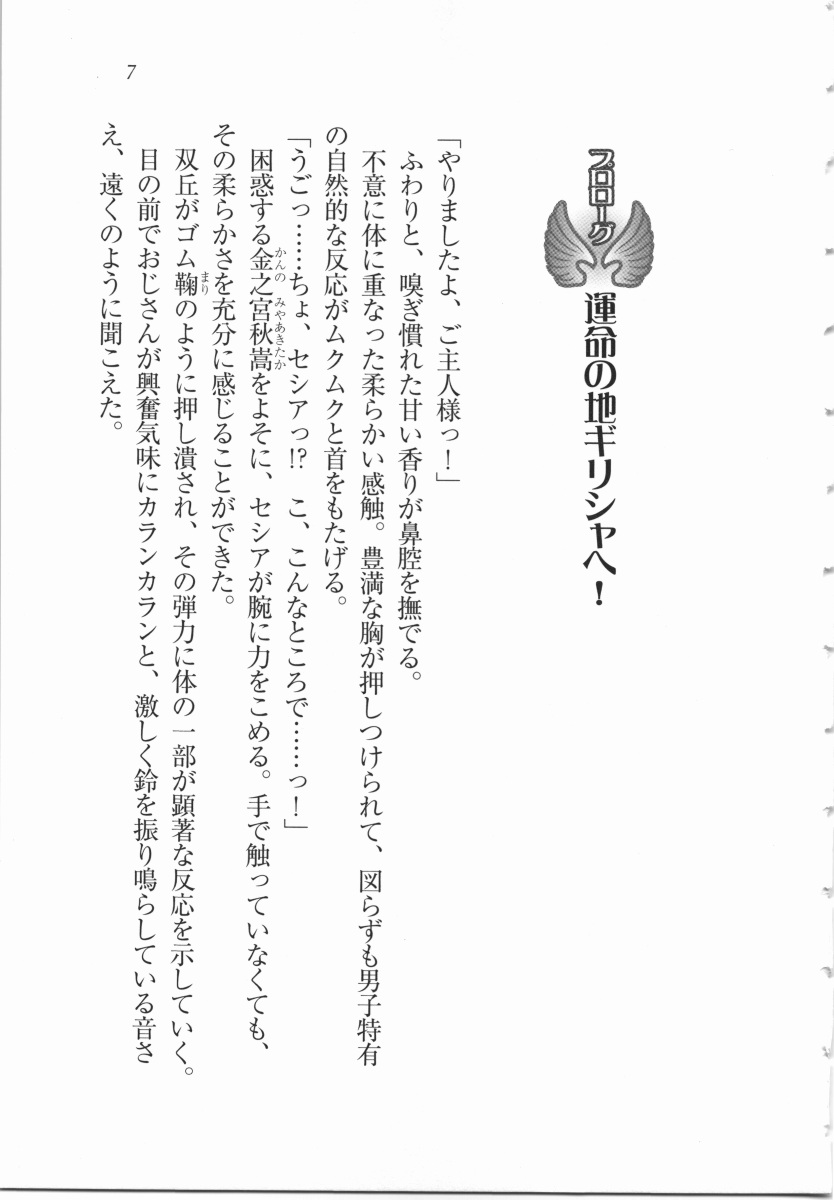 プロローグ 運命の地ギリシャへ!
「やりましたよ、ご主人様っ!」
ふわりと、嗅ぎ慣れた甘い香りが鼻腔を撫でる。
不意に体に重なった柔らかい感触。豊満な胸が押しつけられて、図らずも男子特有
の自然的な反応がムクムクと首をもたげる。
「うごっ……ちょ、セシアっ!? こ、こんなところで……っ!」
困惑する金之宮秋嵩をよそに、セシアが腕に力をこめる。手で触っていなくても、
かんの みやあきたか
その柔らかさを充分に感じることができた。
双丘がゴム鞠のように押し潰され、その弾力に体の一部が顕著な反応を示していく。
まり
目の前でおじさんが興奮気味にカランカランと、激しく鈴を振り鳴らしている音さ
え、遠くのように聞こえた。
7